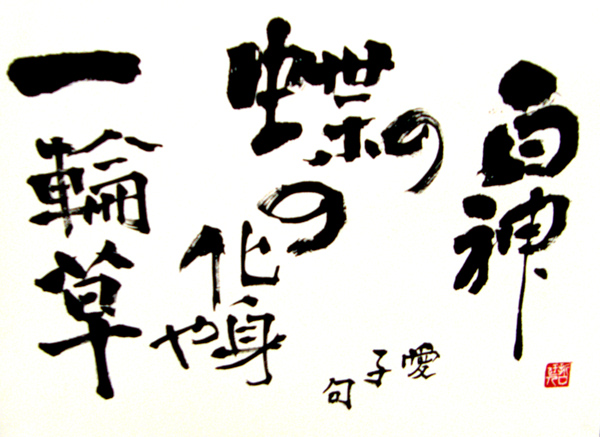 白神
の
蝶の
化身や
一輪草
愛子句